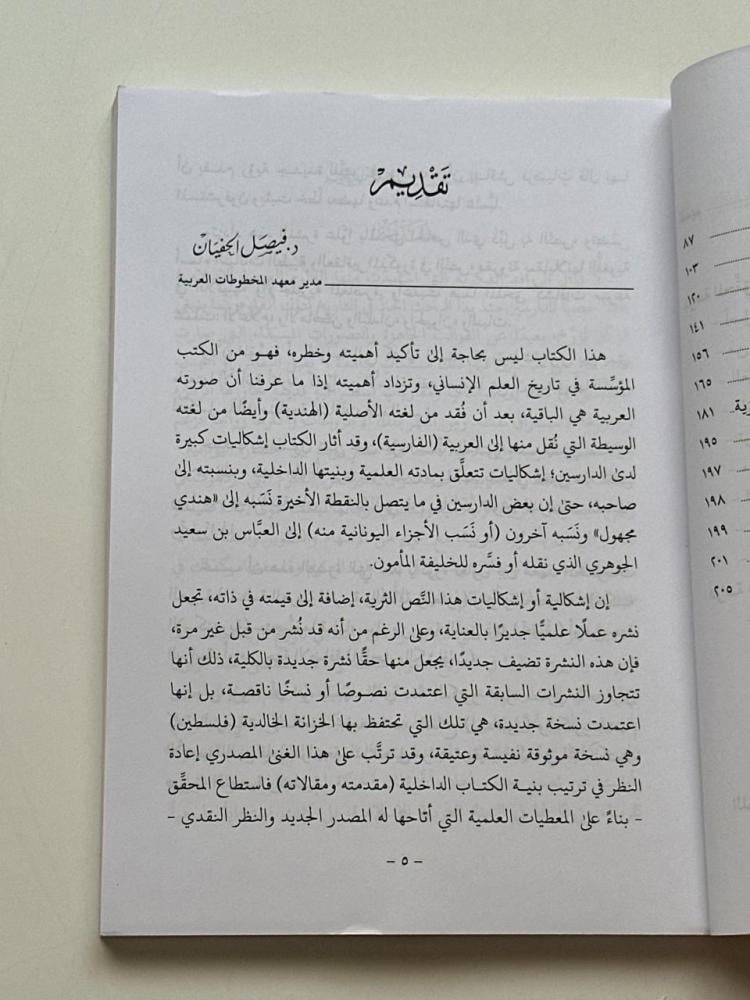 تَقْدِيم
د. فيصل الحفيان
مدير معهد المخطوطات العربية
هذا الكتاب ليس بحاجة إلى تأكيد أهميته وخطره، فهو من الكتب
المؤسِّسة في تاريخ العلم الإنساني، وتزداد أهميته إذا ما عرفنا أن صورته
العربية هي الباقية، بعد أن فُقد من لغته الأصلية (الهندية) وأيضًا من لغته
الوسيطة التي نُقل منها إلى العربية (الفارسية)، وقد أثار الكتاب إشكاليات كبيرة
لدى الدارسين؛ إشكاليات تتعلَّق بمادته العلمية وبنيتها الداخلية، وبنسبته إلى
صاحبه، حتى إن بعض الدارسين في ما يتصل بالنقطة الأخيرة نَسَبه إلى «هندي
مجهول» ونَسَبه آخرون (أو نَسَب الأجزاء اليونانية منه) إلى العبَّاس بن سعيد
الجوهري الذي نقله أو فسَّره للخليفة المأمون.
إن إشكالية أو إشكاليات هذا النَّص الثرية، إضافة إلى قيمته في ذاته، تجعل
نشره عملًا علميًّا جديرًا بالعناية، وعلى الرغم من أنه قد نُشر من قبل غير مرة،
فإن هذه النشرة تضيف جديدًا، يجعل منها حقًّا نشرة جديدة بالكلية، ذلك أنها
تتجاوز النشرات السابقة التي اعتمدت نصوصًا أو نسخًا ناقصة، بل إنها
اعتمدت نسخة جديدة، هي تلك التي تحتفظ بها الخزانة الخالدية (فلسطين)
وهي نسخة موثوقة نفيسة وعتيقة، وقد ترتَّب على هذا الغنى المصدري إعادة
النظر في ترتيب بنية الكتاب الداخلية (مقدمته ومقالاته) فاستطاع المحقِّق
- بناءً على المعطيات العلمية التي أتاحها له المصدر الجديد والنظر النقدي -
- ٥ -
٨٧
١٠٣
١٢٠
١٤١
١٥٦
١٦٥
١٨١
١٩٥
١٩٧
١٩٨
١٩٩
٢٠١
٢٠٥